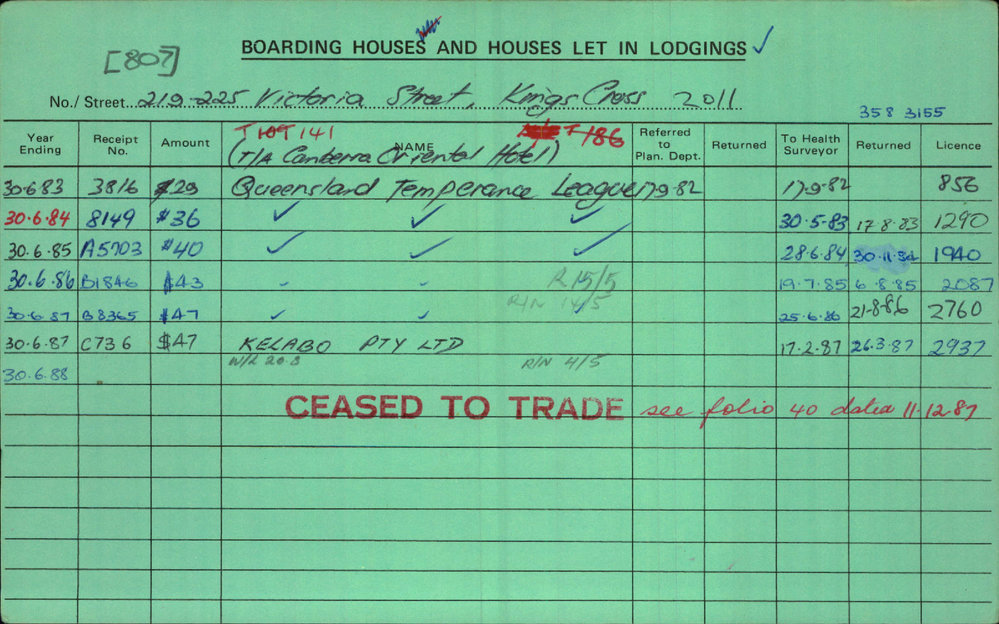 BOARDING HOUSES AND HOUSES LET IN LODGINGS ✓
[807]
No./ Street 219-225 Victoria Street, Kings Cross 2011
358 3155
Year Ending Receipt No. Amount NAME Referred to Plan. Dept. Returned To Health Surveyor Returned Licence
T 141 T186
(T/A Canberra Oriental Hotel)
30.6.83 3816 $29 Queensland Temperance League 17.9.82 17.9.82 856
30.6.84 8149 $36 ✓ ✓ ✓ 30.5.83 17.8.83 1290
30.6.85 A5703 $40 ✓ ✓ ✓ 28.6.84 30.11.84 1940
30.6.86 B1846 $43 ✓ ✓ R 15/5 19.7.85 6.8.85 2087
R/N 14/5
30.6.87 B8365 $47 ✓ ✓ ✓ 25.6.86 21-8-86 2760
30.6.87 C736 $47 KELABO PTY LTD 17.2.87 26.3.87 2937
W/L 20.8 R/N 4/5
30.6.88
CEASED TO TRADE see folio 40 dated 11.12.87